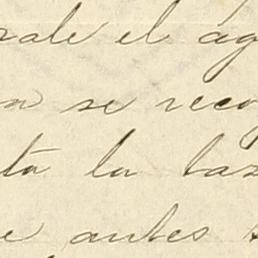 rale el ag
n se reco
ta la taz
e antes s